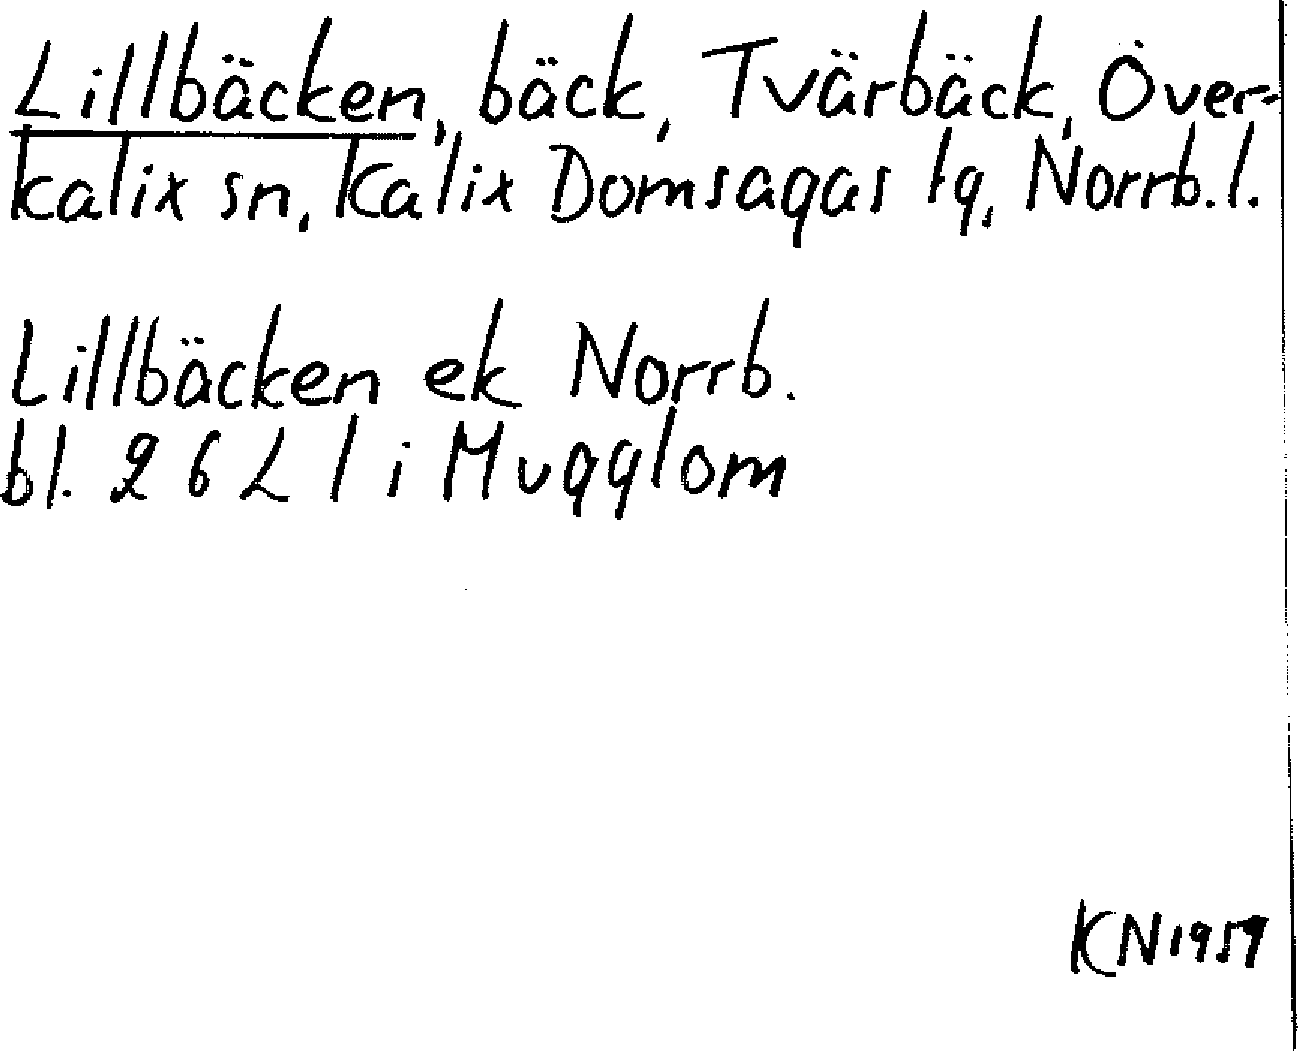 Lillbäcken, bäck, Tvärbäck, Över-
kalix sn, Kalix Domsagas lg, Norrb.l.
Lillbäcken ek Norrb.
bl. 26 L l i Mugglom
KN 1959